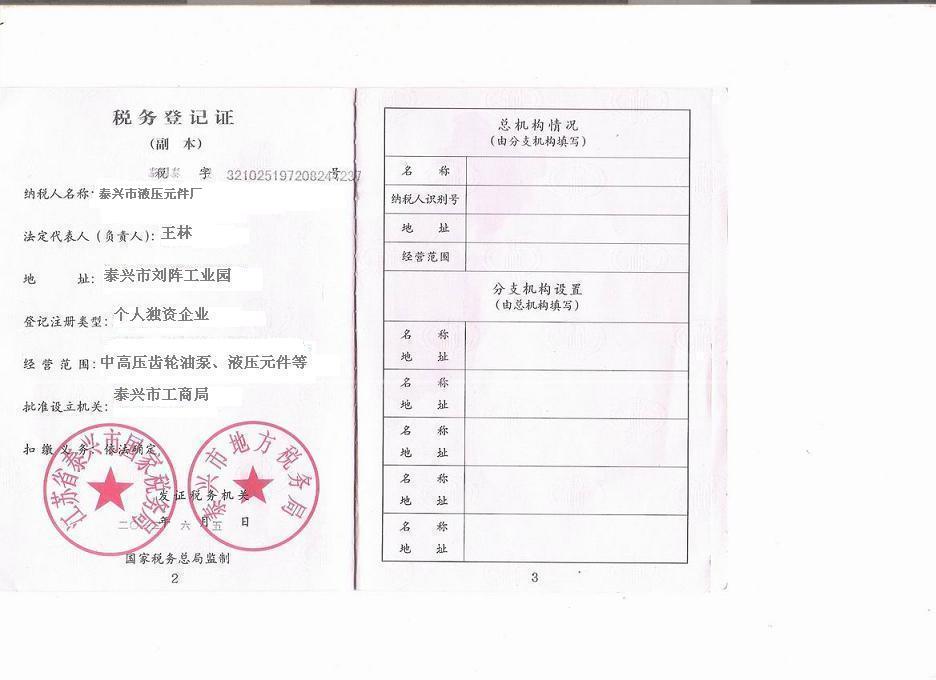 税务登记证
(副 本)
税 字 321025197208244237 号
纳税人名称: 泰兴市液压元件厂
法定代表人(负责人): 王林
地 址: 泰兴市刘阵工业园
登记注册类型: 个人独资企业
经营范围: 中高压齿轮油泵、液压元件等
批准设立机关: 泰兴市工商局
扣缴义务: 依法确定
江苏省泰兴市国家税务局
泰兴市地方税务局
发证税务机关
年 六 月 五 日
国家税务总局监制
2
总机构情况
(由分支机构填写)
名 称
纳税人识别号
地 址
经营范围
分支机构设置
(由总机构填写)
名 称
地 址
名 称
地 址
名 称
地 址
名 称
地 址
名 称
地 址
3